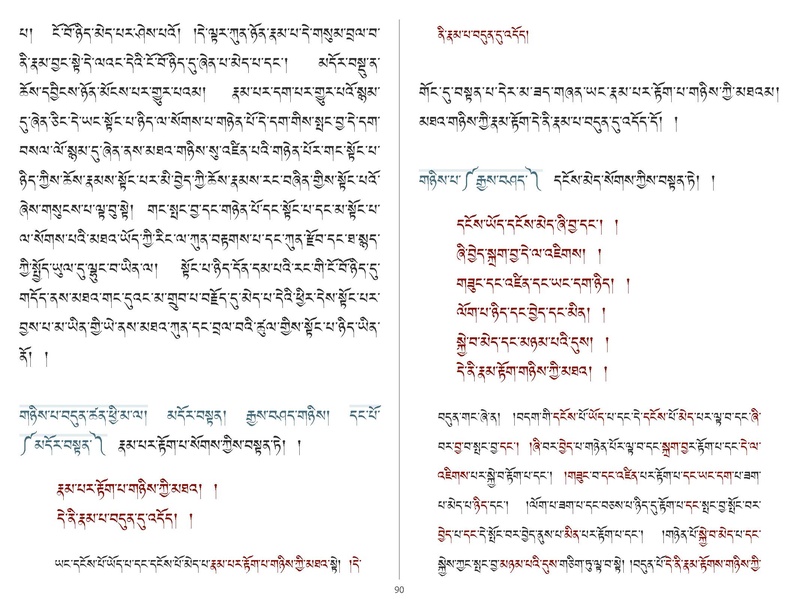 པ། ངོ་བོ་ཉིད་མེད་པར་ཤེས་པའོ། །དེ་ལྟར་ཀུན་ཉོན་རྣམ་པ་དེ་གསུམ་བྲལ་བ་
ནི་རྣམ་བྱང་སྟེ་དེ་ལའང་དེའི་ངོ་བོ་ཉིད་དུ་ཞེན་པ་མེད་པ་དང་། མདོར་བསྡུ་ན་
ཆོས་དབྱིངས་ཉོན་མོངས་པར་གྱུར་པའམ། རྣམ་པར་དག་པར་གྱུར་པའོ་སྙམ་
དུ་ཞེན་ཅིང་དེ་ཡང་སྟོང་པ་ཉིད་ལ་སོགས་པ་གཉེན་པོ་དེ་དག་གིས་སྤང་བྱ་དེ་དག་
བསལ་ལོ་སྙམ་དུ་ཞེན་ནས་མཐའ་གཉིས་སུ་འཛིན་པའི་གཉེན་པོར་གང་སྟོང་པ་
ཉིད་ཀྱིས་ཆོས་རྣམས་སྟོང་པར་མི་བྱེད་ཀྱི་ཆོས་རྣམས་རང་བཞིན་གྱིས་སྟོང་པའོ་
ཞེས་གསུངས་པ་ལྟ་བུ་སྟེ། གང་སྤང་བྱ་དང་གཉེན་པོ་དང་སྟོང་པ་དང་མ་སྟོང་པ་
ལ་སོགས་པའི་མཐའ་ཡོད་ཀྱི་རིང་ལ་ཀུན་བརྟགས་པ་དང་ཀུན་རྫོབ་དང་ཐ་སྙད་
ཀྱི་སྤྱོད་ཡུལ་དུ་ལྷུང་བ་ཡིན་ལ། སྟོང་པ་ཉིད་དོན་དམ་པའི་རང་གི་ངོ་བོ་ཉིད་དུ་
གདོད་ནས་མཐའ་གང་དུའང་མ་གྲུབ་པ་བརྗོད་དུ་མེད་པ་དེའི་ཕྱིར་དེས་སྟོང་པར་
བྱས་པ་མ་ཡིན་གྱི་ཡེ་ནས་མཐའ་ཀུན་དང་བྲལ་བའི་ཚུལ་གྱིས་སྟོང་པ་ཉིད་ཡིན་
ནོ། །
གཉིས་པ་བདུན་ཚན་ཕྱི་མ་ལ། མདོར་བསྟན། རྒྱས་བཤད་གཉིས། དང་པོ་
༼མདོར་བསྟན་༽ རྣམ་པར་རྟོག་པ་སོགས་ཀྱིས་བསྟན་ཏེ། །
རྣམ་པར་རྟོག་པ་གཉིས་ཀྱི་མཐའ། །
དེ་ནི་རྣམ་པ་བདུན་དུ་འདོད། །
ཡང་དངོས་པོ་ཡོད་པ་དང་དངོས་པོ་མེད་པ་རྣམ་པར་རྟོག་པ་གཉིས་ཀྱི་མཐའ་སྟེ། །དེ་
ནི་རྣམ་པ་བདུན་དུ་འདོད།
གོང་དུ་བསྟན་པ་དེར་མ་ཟད་གཞན་ཡང་རྣམ་པར་རྟོག་པ་གཉིས་ཀྱི་མཐའམ།
མཐའ་གཉིས་ཀྱི་རྣམ་རྟོག་དེ་ནི་རྣམ་པ་བདུན་དུ་འདོད་དོ། །
གཉིས་པ་༼རྒྱས་བཤད་༽ དངོས་མེད་སོགས་ཀྱིས་བསྟན་ཏེ། །
དངོས་ཡོད་དངོས་མེད་ཞི་བྱ་དང་། །
ཞི་བྱེད་སྐྲག་བྱ་དེ་ལ་འཇིགས། །
གཟུང་དང་འཛིན་དང་ཡང་དག་ཉིད། །
ལོག་པ་ཉིད་དང་བྱེད་དང་མིན། །
སྐྱེ་བ་མེད་དང་མཉམ་པའི་དུས། །
དེ་ནི་རྣམ་རྟོག་གཉིས་ཀྱི་མཐའ། །
བདུན་གང་ཞེ་ན། །བདག་གི་དངོས་པོ་ཡོད་པ་དང་དེ་དངོས་པོ་མེད་པར་ལྟ་བ་དང་ཞི་
བར་བྱ་བ་སྤང་བྱ་དང་། །ཞི་བར་བྱེད་པ་གཉེན་པོར་ལྟ་བ་དང་སྐྲག་བྱར་རྟོག་པ་དང་དེ་ལ་
འཇིགས་པར་སྐྱེ་བ་རྟོག་པ་དང་། །གཟུང་བ་དང་འཛིན་པར་རྟོག་པ་དང་ཡང་དག་པ་ཟག་
པ་མེད་པ་ཉིད་དང་། །ལོག་པ་ཟག་པ་དང་བཅས་པ་ཉིད་དུ་རྟོག་པ་དང་སྤང་བྱ་སྤྱོང་བར་
བྱེད་པ་དང་དེ་སྤྱོང་བར་བྱེད་ནུས་པ་མིན་པར་རྟོག་པ་དང་། །གཉེན་པོ་སྐྱེ་བ་མེད་པ་དང་
སྐྱེས་ཀྱང་སྤང་བྱ་མཉམ་པའི་དུས་གཅིག་ཏུ་ལྟ་བ་སྟེ། །བདུན་པོ་དེ་ནི་རྣམ་རྟོགས་གཉིས་ཀྱི་
90